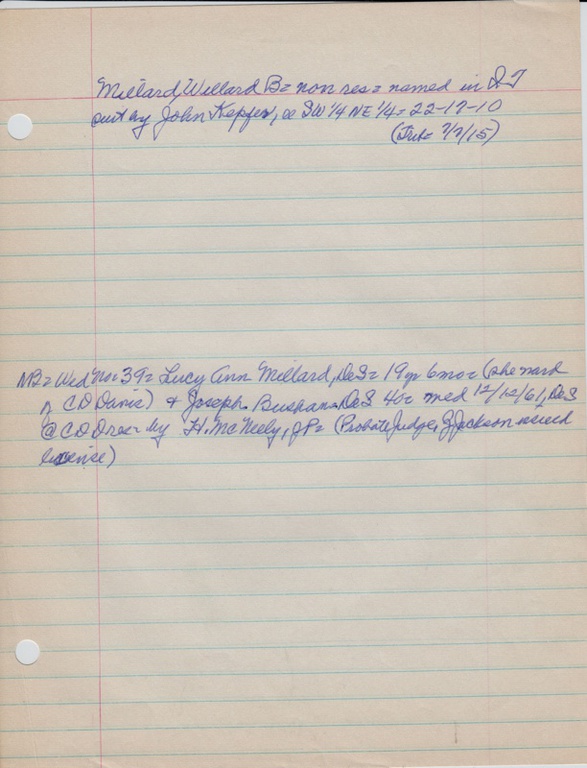 Millard, Willard B = non res = named in QT
suit by John Kepfer, SW 1/4 NE 1/4 = 22-17-10
(Trib = 7/7/15)
MB = Wed No = 39 = Lucy Ann Millard, DeS = 19 yr 6 mo = (she ward
of CD Davis) & Joseph Busham DeS 40 = med 12/12/61, DeS
@ CDD res = by H. McNeely, JP = (Probate Judge, J Jackson issued
license)